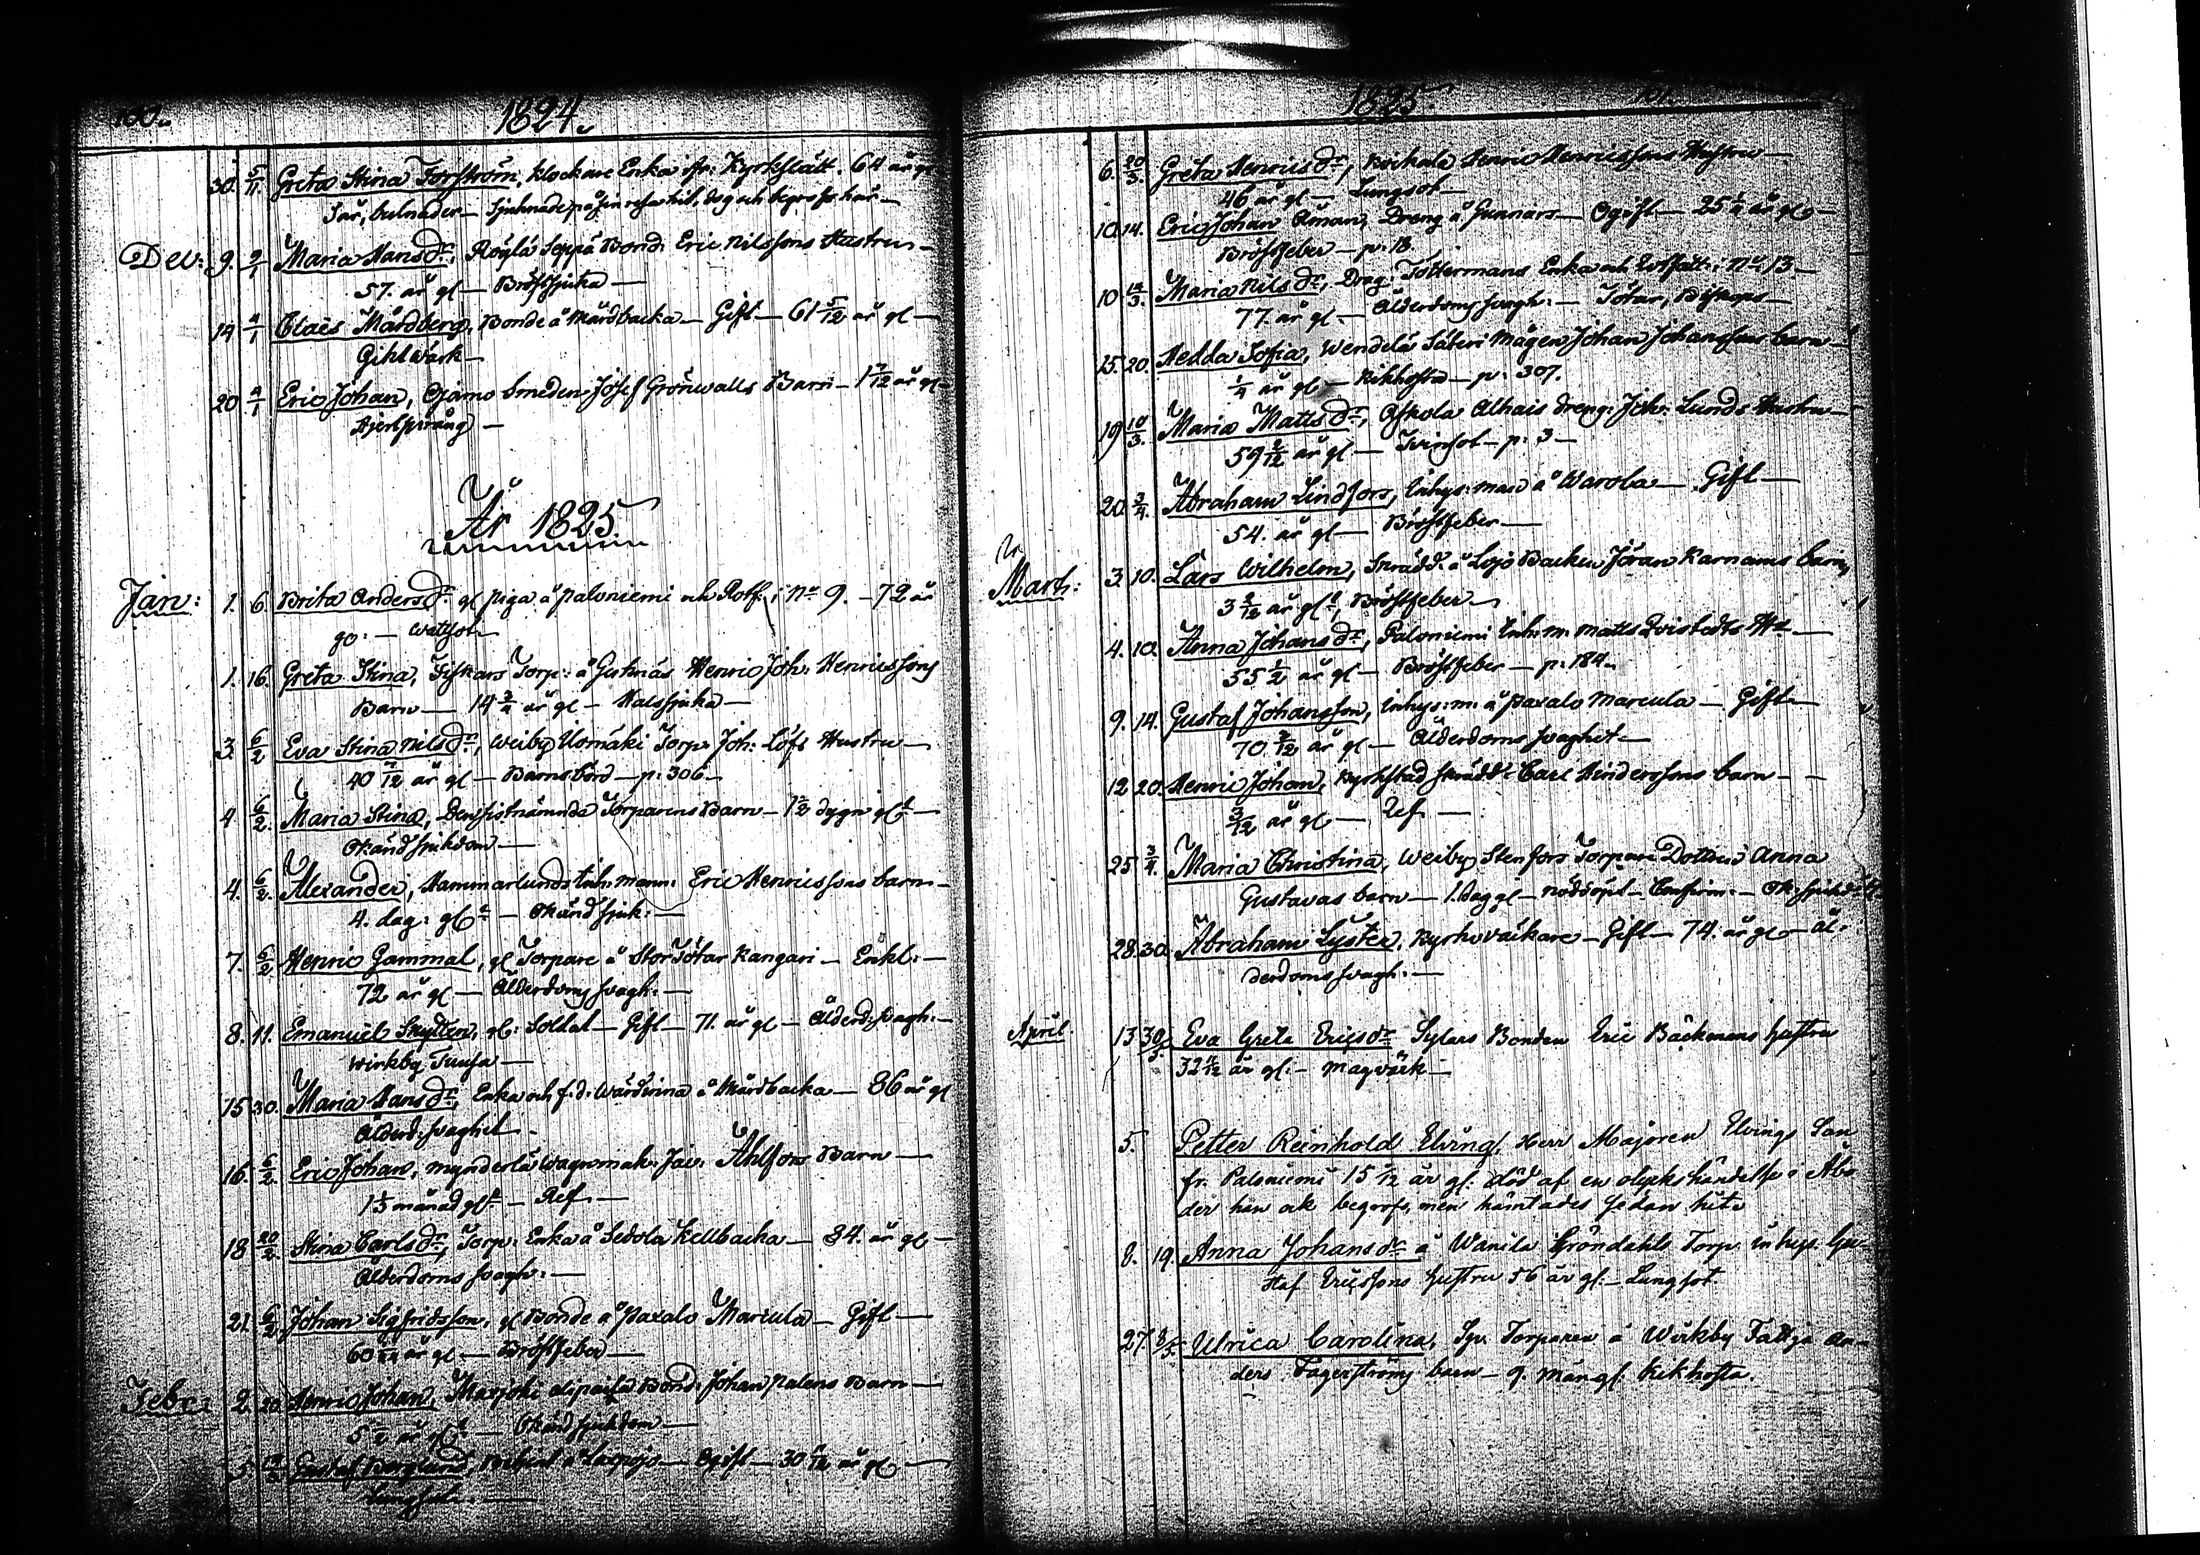 100.
1824.
30. 5/11. Greta Stina Forsström, klockare Enka fr: Kyrkslätt. 64 år gl
Sår, bulnader — Sjuknade på sin resa hit, dog och begrofs här —
Dec: 9. 2/1 Maria Hansdr, Röglä Seppä Bond: Eric Nilssons Hustru —
57. år gl — Bröstsjuka —
14 2/1 Claës Mårdberg, Bonde å Mårdbacka — Gift — 61 5/12 år gl —
Giktvärk —
20 2/1 Eric Johan, Ojamo Smeden Josef Grönwalls Barn — 1 7/12 år gl —
Hjertsprång —
År 1825
Jan: 1. 6. Brita Andersdr gl piga å Paloniemi och Rotf: i No 9. — 72 år
go: — Wattsot —
1. 16. Greta Stina, Fiskars Torp: å Gutnäs Henric Joh: Henricssons
Barn — 14 3/4 år gl — Halssjuka —
3. 6/2 Eva Stina Nilsdr, Weiby Uomäki Torp: Joh: Löfs Hustru —
40 7/12 år gl — Barnsbörd — p: 306 —
4 6/2. Maria Stina, Densistnämnde Torparens Barn — 1 1/2 dygn glt —
Okänd sjukdom —
4. 6/2. Alexander, Hammarlunds Inh: mann: Eric Henricssons barn —
4. dag: glt — Okänd sjuk: —
7. 6/2 Henric Gammal, gl Torpare å Stor Tötar Kangari — Enkl: —
72 år gl — Ålderdoms svagh: —
8. 11. Emanuel Snytten, gl: Soldat — Gift — 71. år gl — Ålderd: svagh: —
Wirkby —
15 30. Maria Hansdr, Enka och f.d. Wärdinna å Mårdbacka — 86 år gl
Ålderd: svaghet —
16. 6/2 Eric Johan, Mynderlä Wagnmak: Jac: Åhlfors Barn —
1 1/3 månad glt — Ref —
18 20/2. Stina Carlsdr, Torp: Enka å Sedola Kellbacka — 84. år gl —
Ålderdoms svagh: —
21. 6/2 Johan Sigfridsson, gl Bonde å Paxalo Marcula — Gift —
60 år gl — Bröstfeber —
Febr: 2. 20. Henric Johan, Maxjoki Bond: Johan Palens Barn —
5 1/2 år glt — Okänd sjukdom —
5. Gustaf Berglund, — Ogift — 30 år gl —
1825.
101.
6. 20/3. Greta Henricsdr, Henric Henricssons Hustru —
46 år gl — Lungsot —
10. 14. Eric Johan Öman, Dreng å Gunnars — Ogift — 25 1/4 år gl —
Bröstfeber — p: 13.
10 13/3. Maria Nilsdr, Drag: Tottermans Enka och Rotfatt: i No 13 —
77. år gl — Ålderdoms svagh: — Tötar, Biskops —
15. 20. Hedda Sofia, Wendelä Säteri Mågen Johan Johanssons barn —
1/4 år gl — Kikhosta — p: 307.
19 10/3. Maria Mattsdr, Ojkola Alhais Dreng: Joh: Lunds Hustru —
59 2/12 år gl — Tvinsot — p: 3 —
20. 3/4. Abraham Lindfors, Inhys: man å Warola — Gift —
54. år gl — Bröstfeber —
Mart: 3. 10. Lars Wilhelm, Skrädd: å Lojo Backen Jöran Karnanens barn,
3 2/12 år glt, Bröstfeber —
4. 10. Anna Johansdr, Paloniemi Inh: m: Matts Qvistedts Hu —
55 1/2 år gl — Bröstfeber — p: 184 —
9. 14. Gustaf Johansson, Inhys: m: å Paxalo Marcula — Gift —
70 2/12 år gl — Ålderdoms svaghet —
12 20. Henric Johan, Kyrkstad skrädd: Carl Hinderssons barn —
3/12 år gl — Ref —
25 3/4. Maria Christina, Weiby Stenfors Torpare Dottren Anna
Gustavas barn — 1. dag gl — nöddöpt — Confirm: — Ok: sjukd:
28. 30. Abraham Lyster, Kyrkoväckare — Gift — 74. år gl — Ål-
derdoms svagh: —
April. 13 30/5 Eva Greta Ericsdr Sylars Bonden Eric Bäckmans hustru
32 år gl: — Magvärk —
5. Petter Reinhold Elving, Herr Majoren Elvings Son
fr. Paloniemi 15 år gl. död af en olycks händelse i Åbo
der han ock begrofs, men hämtades sedan hit.
8. 19. Anna Johansdr å Wanila Gröndahls Torp inhys: Gu-
staf Ericssons hustru 56 år gl. — Lungsot
27. 8/5. Ulrica Carolina, Torparen å Wirkby Fattja An-
ders Fagerströms barn — 9. mån gl. Kikhosta.